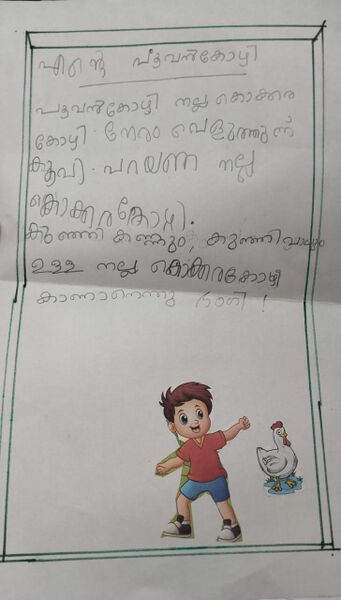 എന്റെ പൂവൻകോഴി
പൂവൻകോഴി നല്ല കൊക്കര
കോഴി. നേരം വെളുത്തുന്ന്
കൂവി. പറയണ നല്ല
കൊക്കരകോഴി.
കുഞ്ഞി കണ്ണും, കുഞ്ഞിവാലും
ഉള്ള നല്ല കൊക്കരകോഴി
കാണാനെന്തു ഭംഗി !